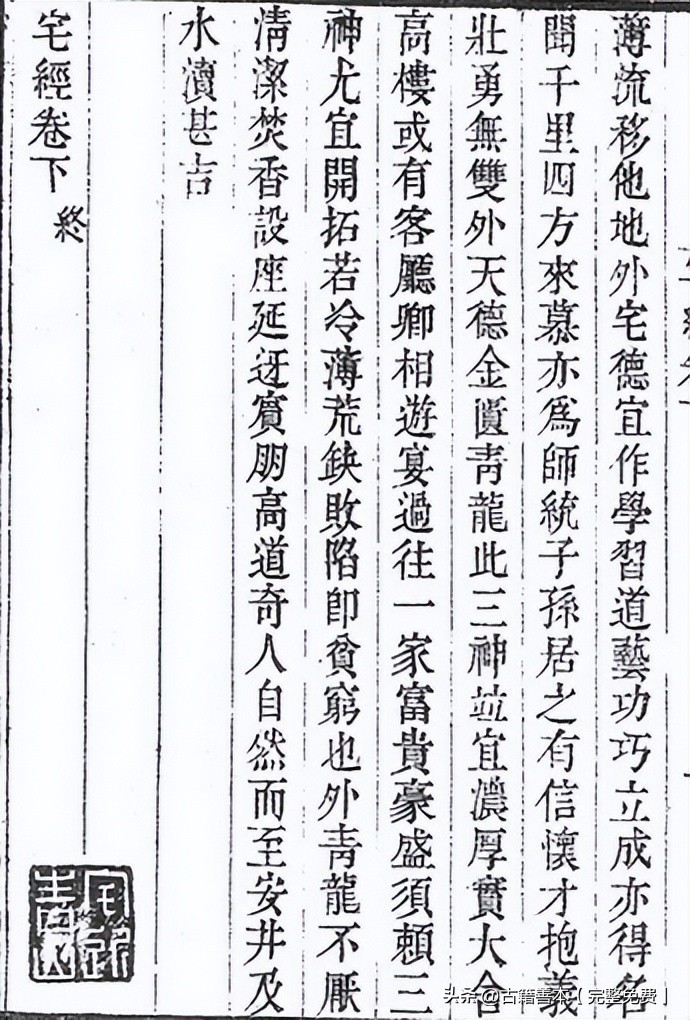 薄流移他地外宅德宜作學習道藝功巧立成亦得名
聞千里四方來慕亦爲師統子孫居之有信懷才抱義
壯勇無雙外天德金匱青龍此三神竝宜濃厚實大舍
高樓或有客廳卿相遊宴過往一家富貴豪盛須賴三
神尤宜開拓若冷薄荒缺敗陷卽貧窮也外青龍不厭
清潔焚香設座延迓賓朋高道奇人自然而至安井及
水瀆甚吉
宅經卷下 終
头条 @古籍善本【完整免费】